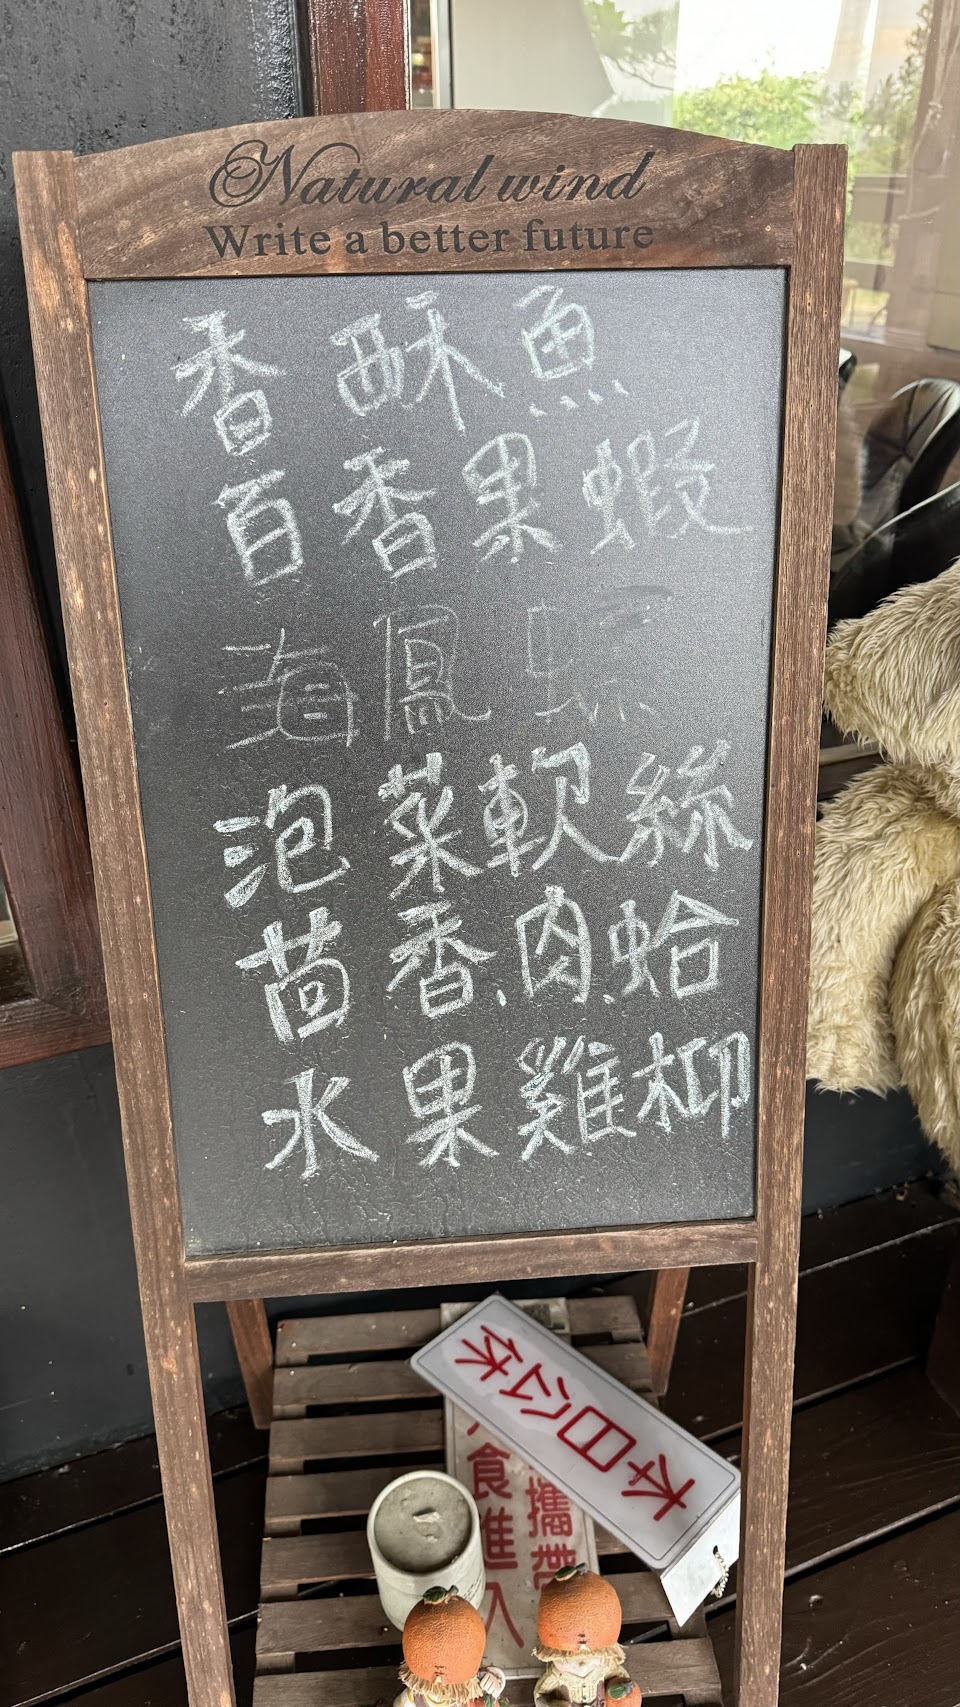 Natural wind
Write a better future
香酥魚
百香果蝦
海鳳螺
泡菜軟絲
茴香、肉、蛤
水果雞柳
本日公休
攜帶
食進入